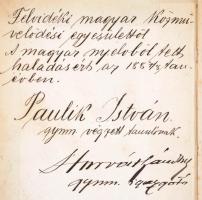 Felvidéki magyar közmű-
velődési egyesülettől
A magyar nyelvből tett
haladásért az 1887/8. tan-
évben.
Paulik István
gymn. végzett tanulónak.
Horváth Sándor
gymn. igazgató